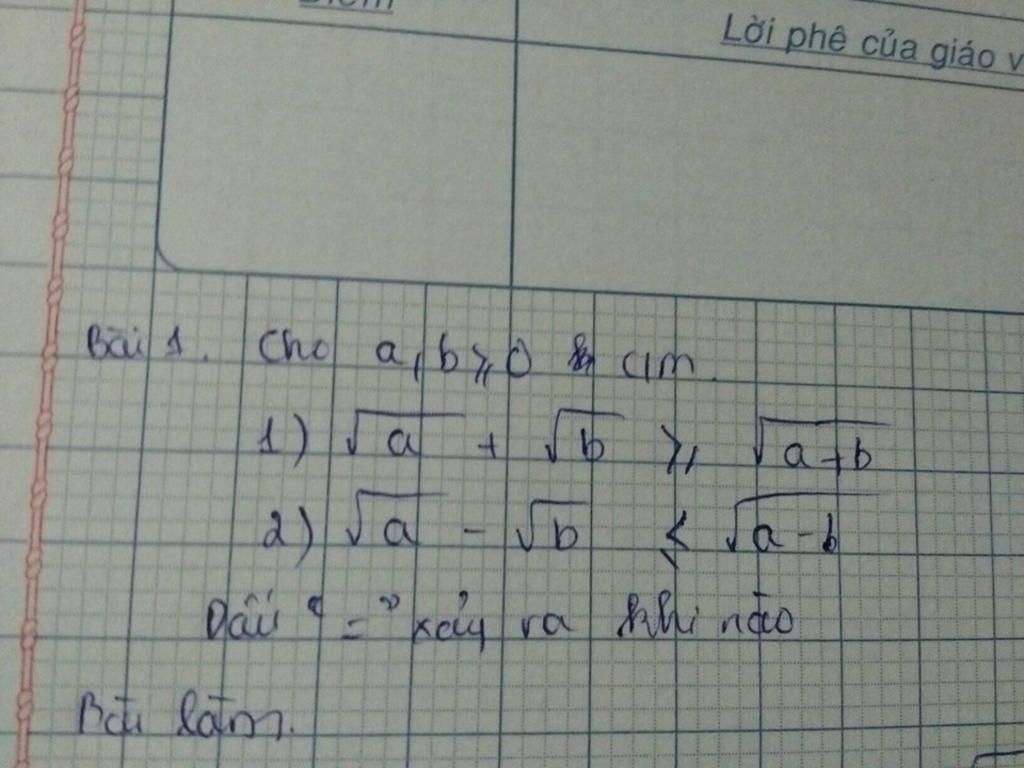 Điểm
Lời phê của giáo v
Bài 1. Cho a, b ⩾ 0 cm.
1) √a + √b ⩾ √a+b
2) √a - √b ⩽ √a-b
Dấu "=" xảy ra khi nào
Bài làm.